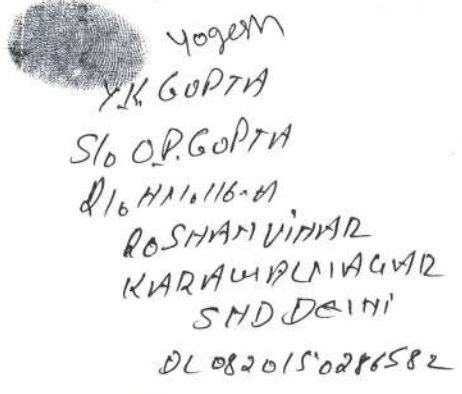 Yogesh
Y.K. GUPTA
S/o O.P. GUPTA
R/o H.N. 116-A
ROSHAN VIHAR
KARAWAL NAGAR
DELHI
DL 0820150286582